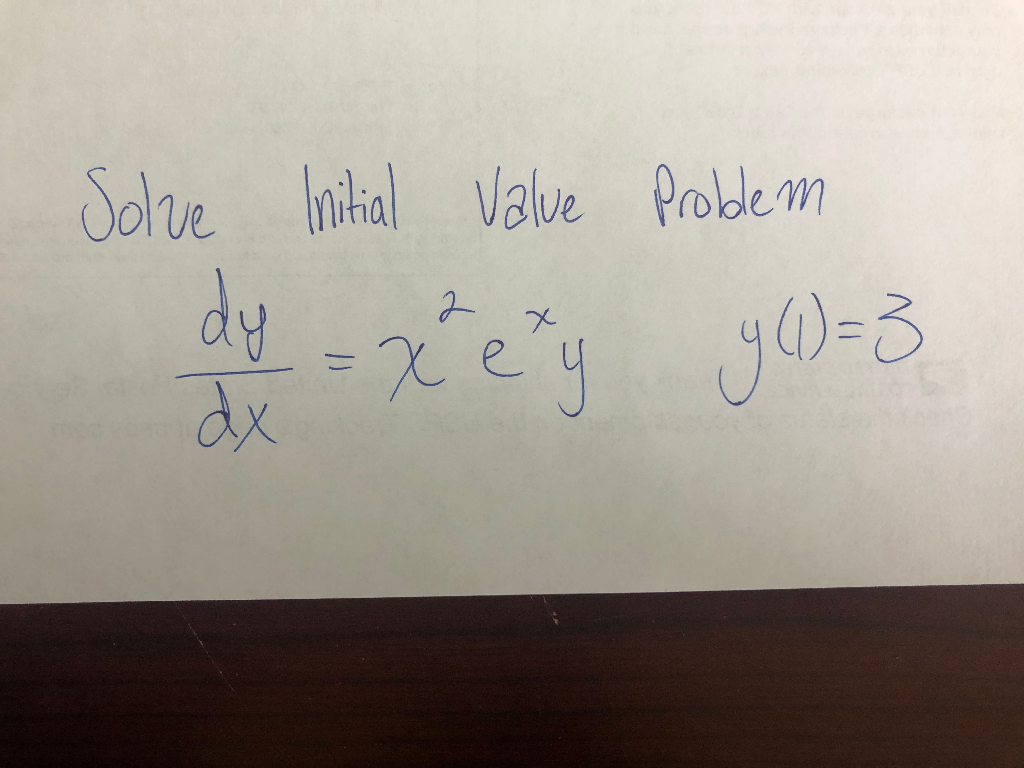 Solve Initial Value Problem
dy/dx = x² eˣ y    y(1)=3